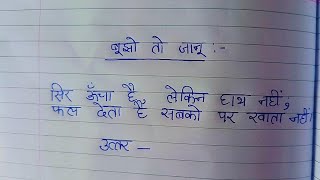 बूझो तो जानू :-
सिर ऊँचा है लेकिन हाथ नहीं,
फल देता है सबको पर खाता नहीं।
उत्तर —